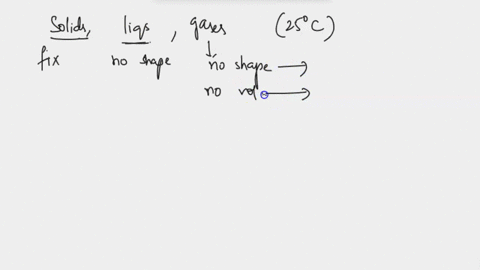 Solids, liqs, gases (25°C)
fix no shape no shape →
no vol →